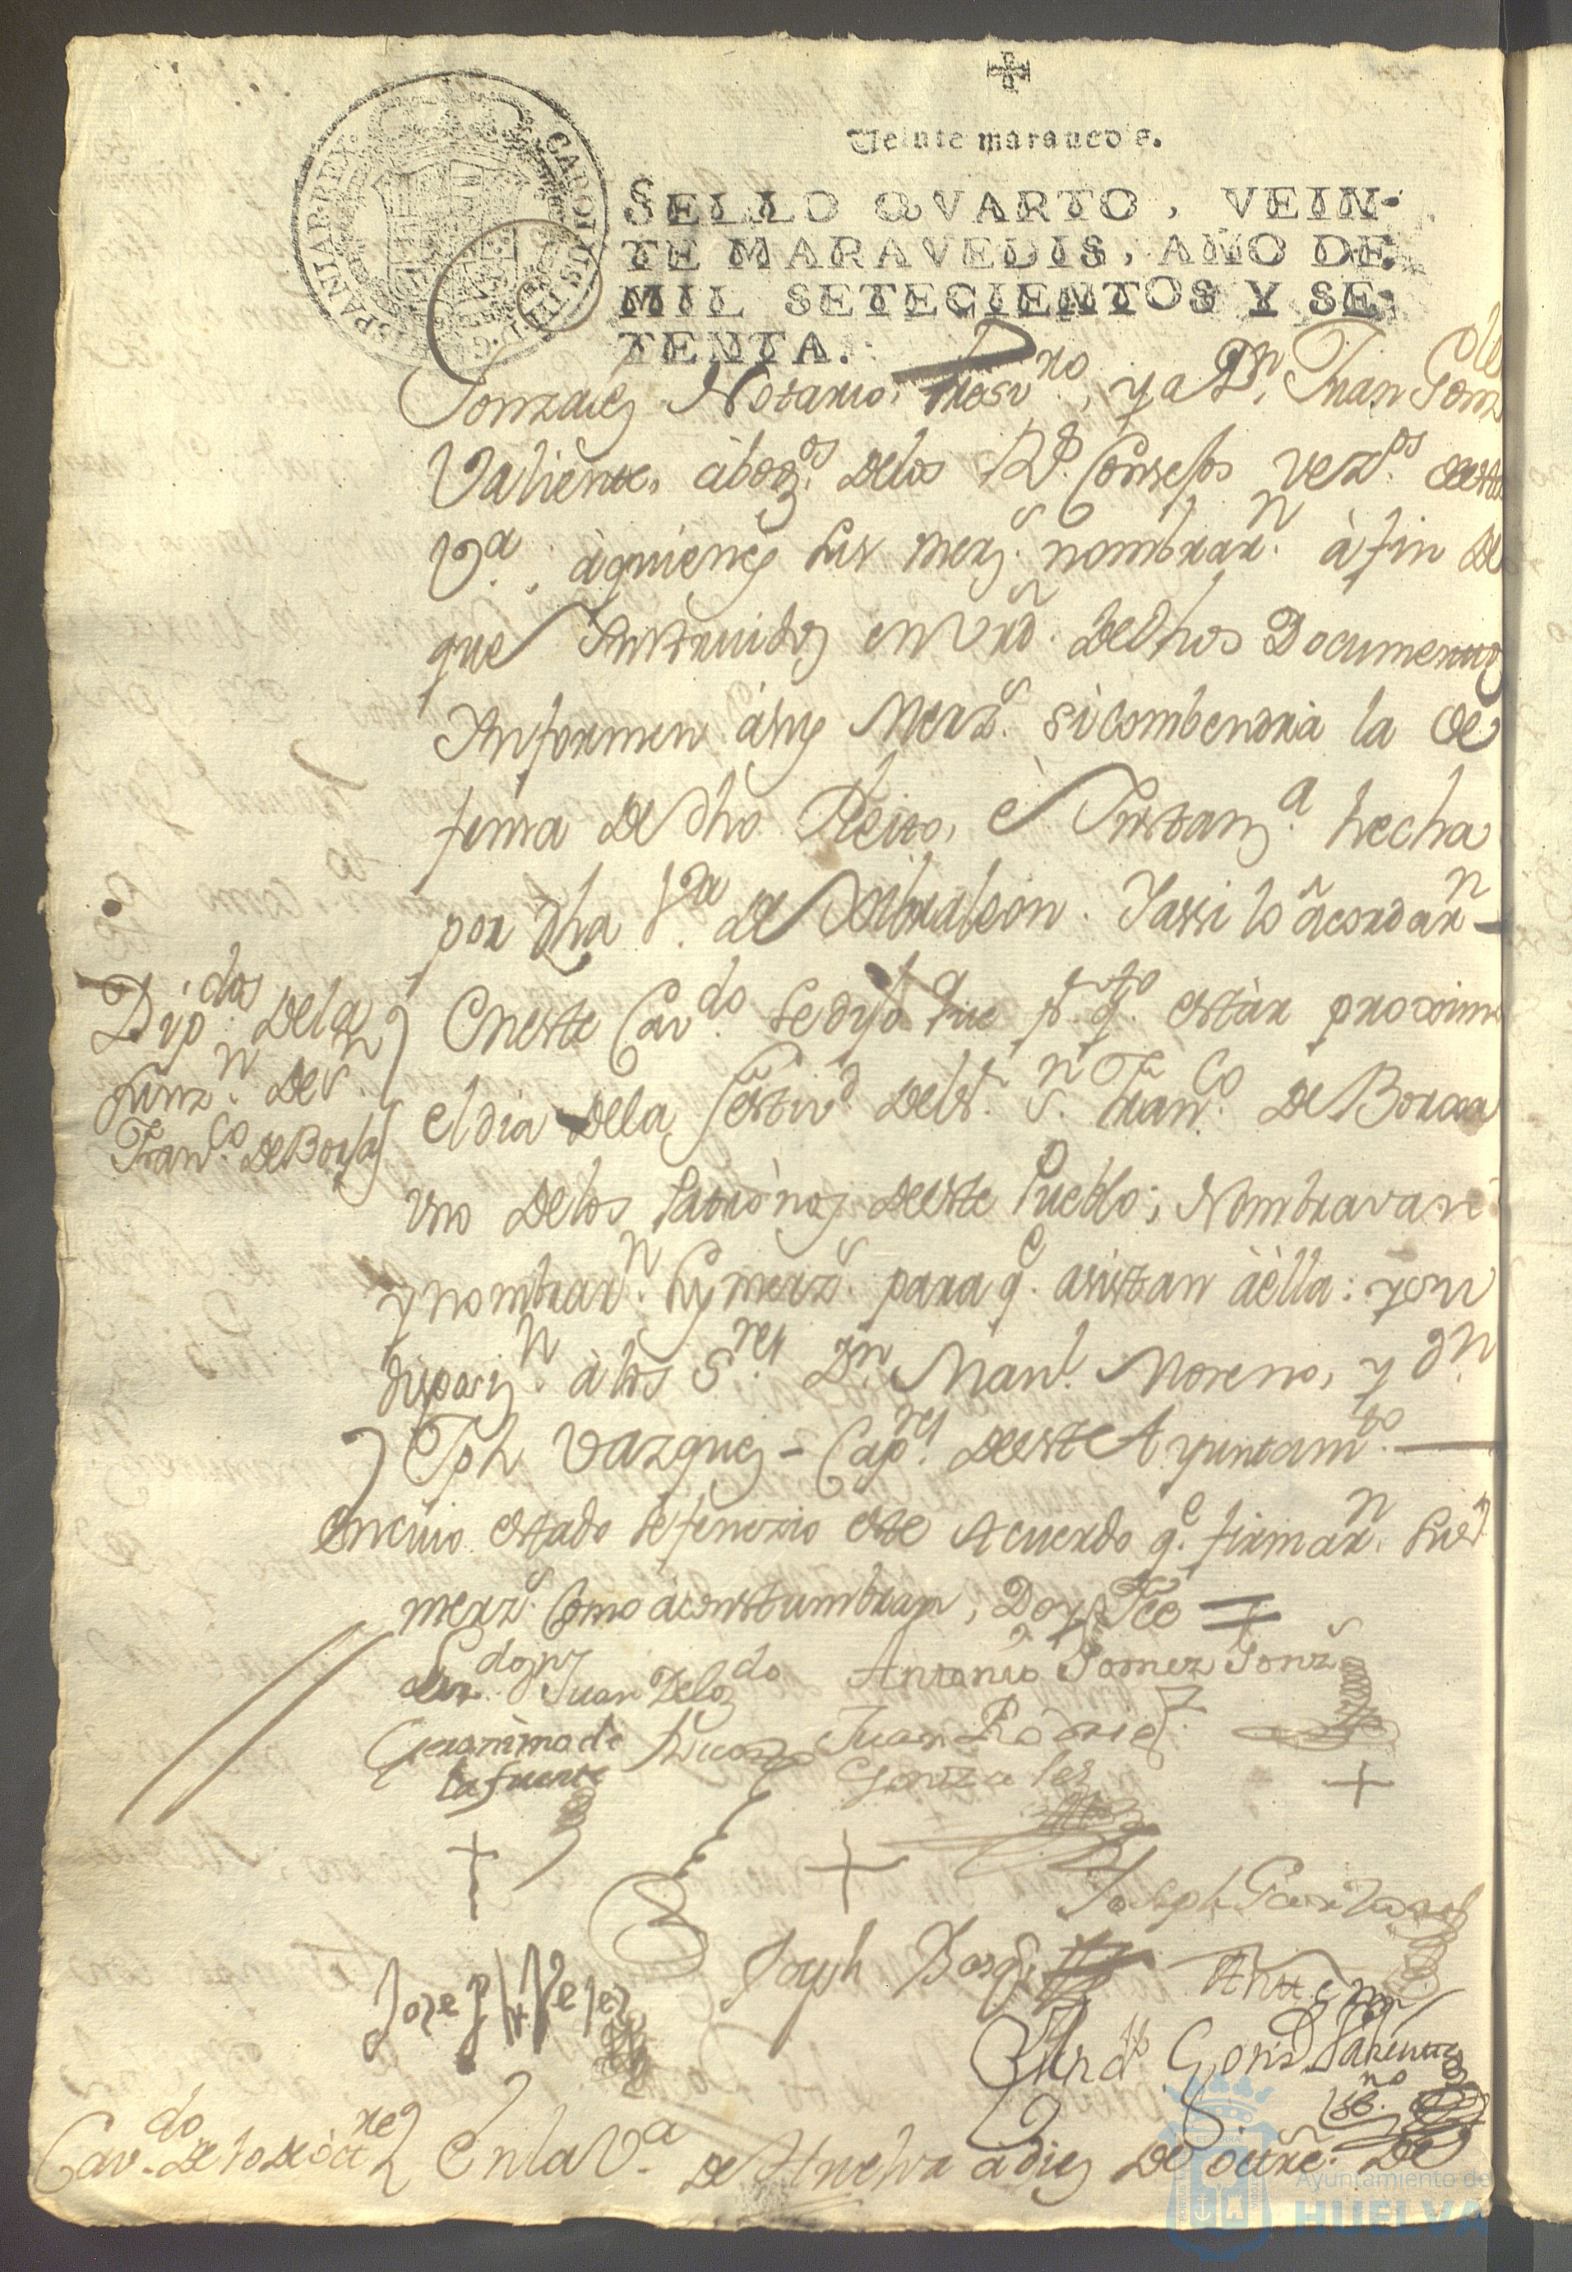 Veinte maravedis.
SELLO QVARTO, VEIN-
TE MARAVEDIS, AÑO DE
MIL SETECIENTOS Y SE-
TENTA.
CAROLUS III D.G. HISPANIAR. REX
Gonzales Notario, Presvro, y a Dn. Juan Gonz
Valiente, àbogos. delos Rs. Consejos vezos. deesta
Va. àquienes sus merzs. nombrarn. à fin de
que Instruidos en Vrd. de dhos Documentos
Informen àsus Merzs. si combendria la de
fensa de dho Pleito, è Instanza. hecha
por dha Va. de Xibraleon. Yassi lo acordarn
Dipdos. dela
funzn. de S.
Franco. de Borja
Eneste Cavdo. se dijo que pr. qto. estàr proximo
el dia dela festivd. del Sr. Sn. Franco. De Borxa
uno delos Patronos deeste Pueblo; Nombravan
y nombrarn. sus merzs. para qe. asistan àella: y en
disposizn. à los Sres. Dn. Manl. Moreno, y Dn.
Jph Vazquez - Capres. deeste Ayuntamto.
Encuio estado se fenezio este Acuerdo qe. firmarn. sus
merzs. como àcostumbran, Doy Fee =
Lizdo. Dn. Juan Delgdo
Antonio Gomez Gonzs
Geronimo de
la fuente
Juan Rodrigz.
Gonzales
Joseph Garzia
Joseph Borg
Joseph Vejer
Ante mi
Gonz Valiente
Cavdo. de 10 de octre
En la Va. de Huelva à diez de octre. de
Ayuntamiento de
HUELVA